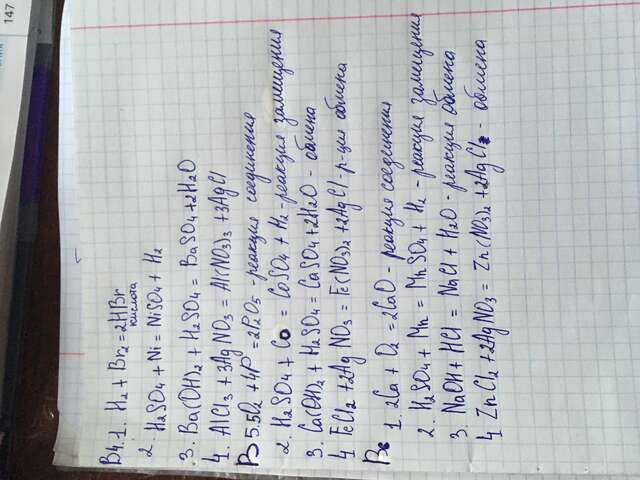 147
В4.1. H₂ + Br₂ = 2HBr
кислота
2. H₂SO₄ + Ni = NiSO₄ + H₂
3. Ba(OH)₂ + H₂SO₄ = BaSO₄ + 2H₂O
4. AlCl₃ + 3AgNO₃ = Al(NO₃)₃ + 3AgCl
В 5. 5O₂ + 4P = 2P₂O₅ - реакция соединения
2. H₂SO₄ + Co = CoSO₄ + H₂ - реакция замещения
3. Ca(OH)₂ + H₂SO₄ = CaSO₄ + 2H₂O - обмена
4 FeCl₂ + 2AgNO₃ = Fe(NO₃)₂ + 2AgCl - р-ция обмена
В6
1. 2Ca + O₂ = 2CaO - реакция соединения
2. H₂SO₄ + Mn = MnSO₄ + H₂ - реакция замещения
3. NaOH + HCl = NaCl + H₂O - реакция обмена
4 ZnCl₂ + 2AgNO₃ = Zn(NO₃)₂ + 2AgCl - обмена